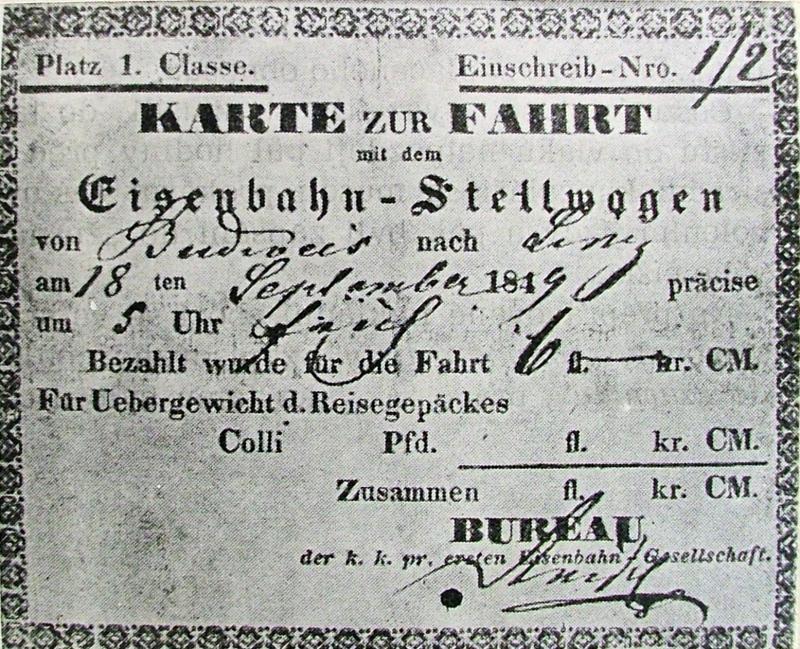 Platz 1. Classe. Einschreib-Nro. 1/2
KARTE ZUR FAHRT
mit dem
Eisenbahn-Stellwagen
von Budweis nach Linz
am 18 ten September 1849 präcise
um 5 Uhr früh
Bezahlt wurde für die Fahrt 6 fl. — kr. CM.
Für Uebergewicht d. Reisegepäckes
Colli Pfd. fl. kr. CM.
Zusammen fl. kr. CM.
BUREAU
der k. k. pr. ersten Eisenbahn-Gesellschaft.